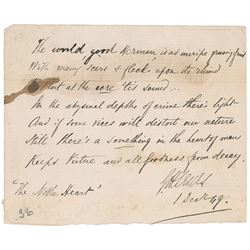 The world good Herman is as unripe
With many scars & flecks upon its rind
But at the core 'tis sound
In the abysmal depths of crime there's light
And if some vices will distort our nature
Still there's a something in the heart of man
Keeps Virtue and all goodness from decay.
"The Noble Heart"
1 Dec 49.
36